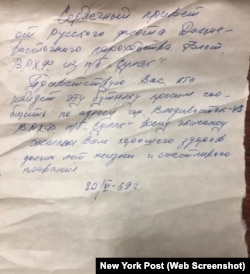 Сердечный привет
от Русского флота Дальне-
восточного пароходства. Флот
ВРХФ из п/б "Сулак".
Приветствую Вас кто
найдет эту бутылку просим соо-
бщить по адресу гор Владивосток-43
ВРХФ п/б "Сулак" всему экипажу
желаем Вам хорошего здоров
долгих лет жизни и счастливого
плавания
20/VI-69 г.
New York Post (Web Screenshot)